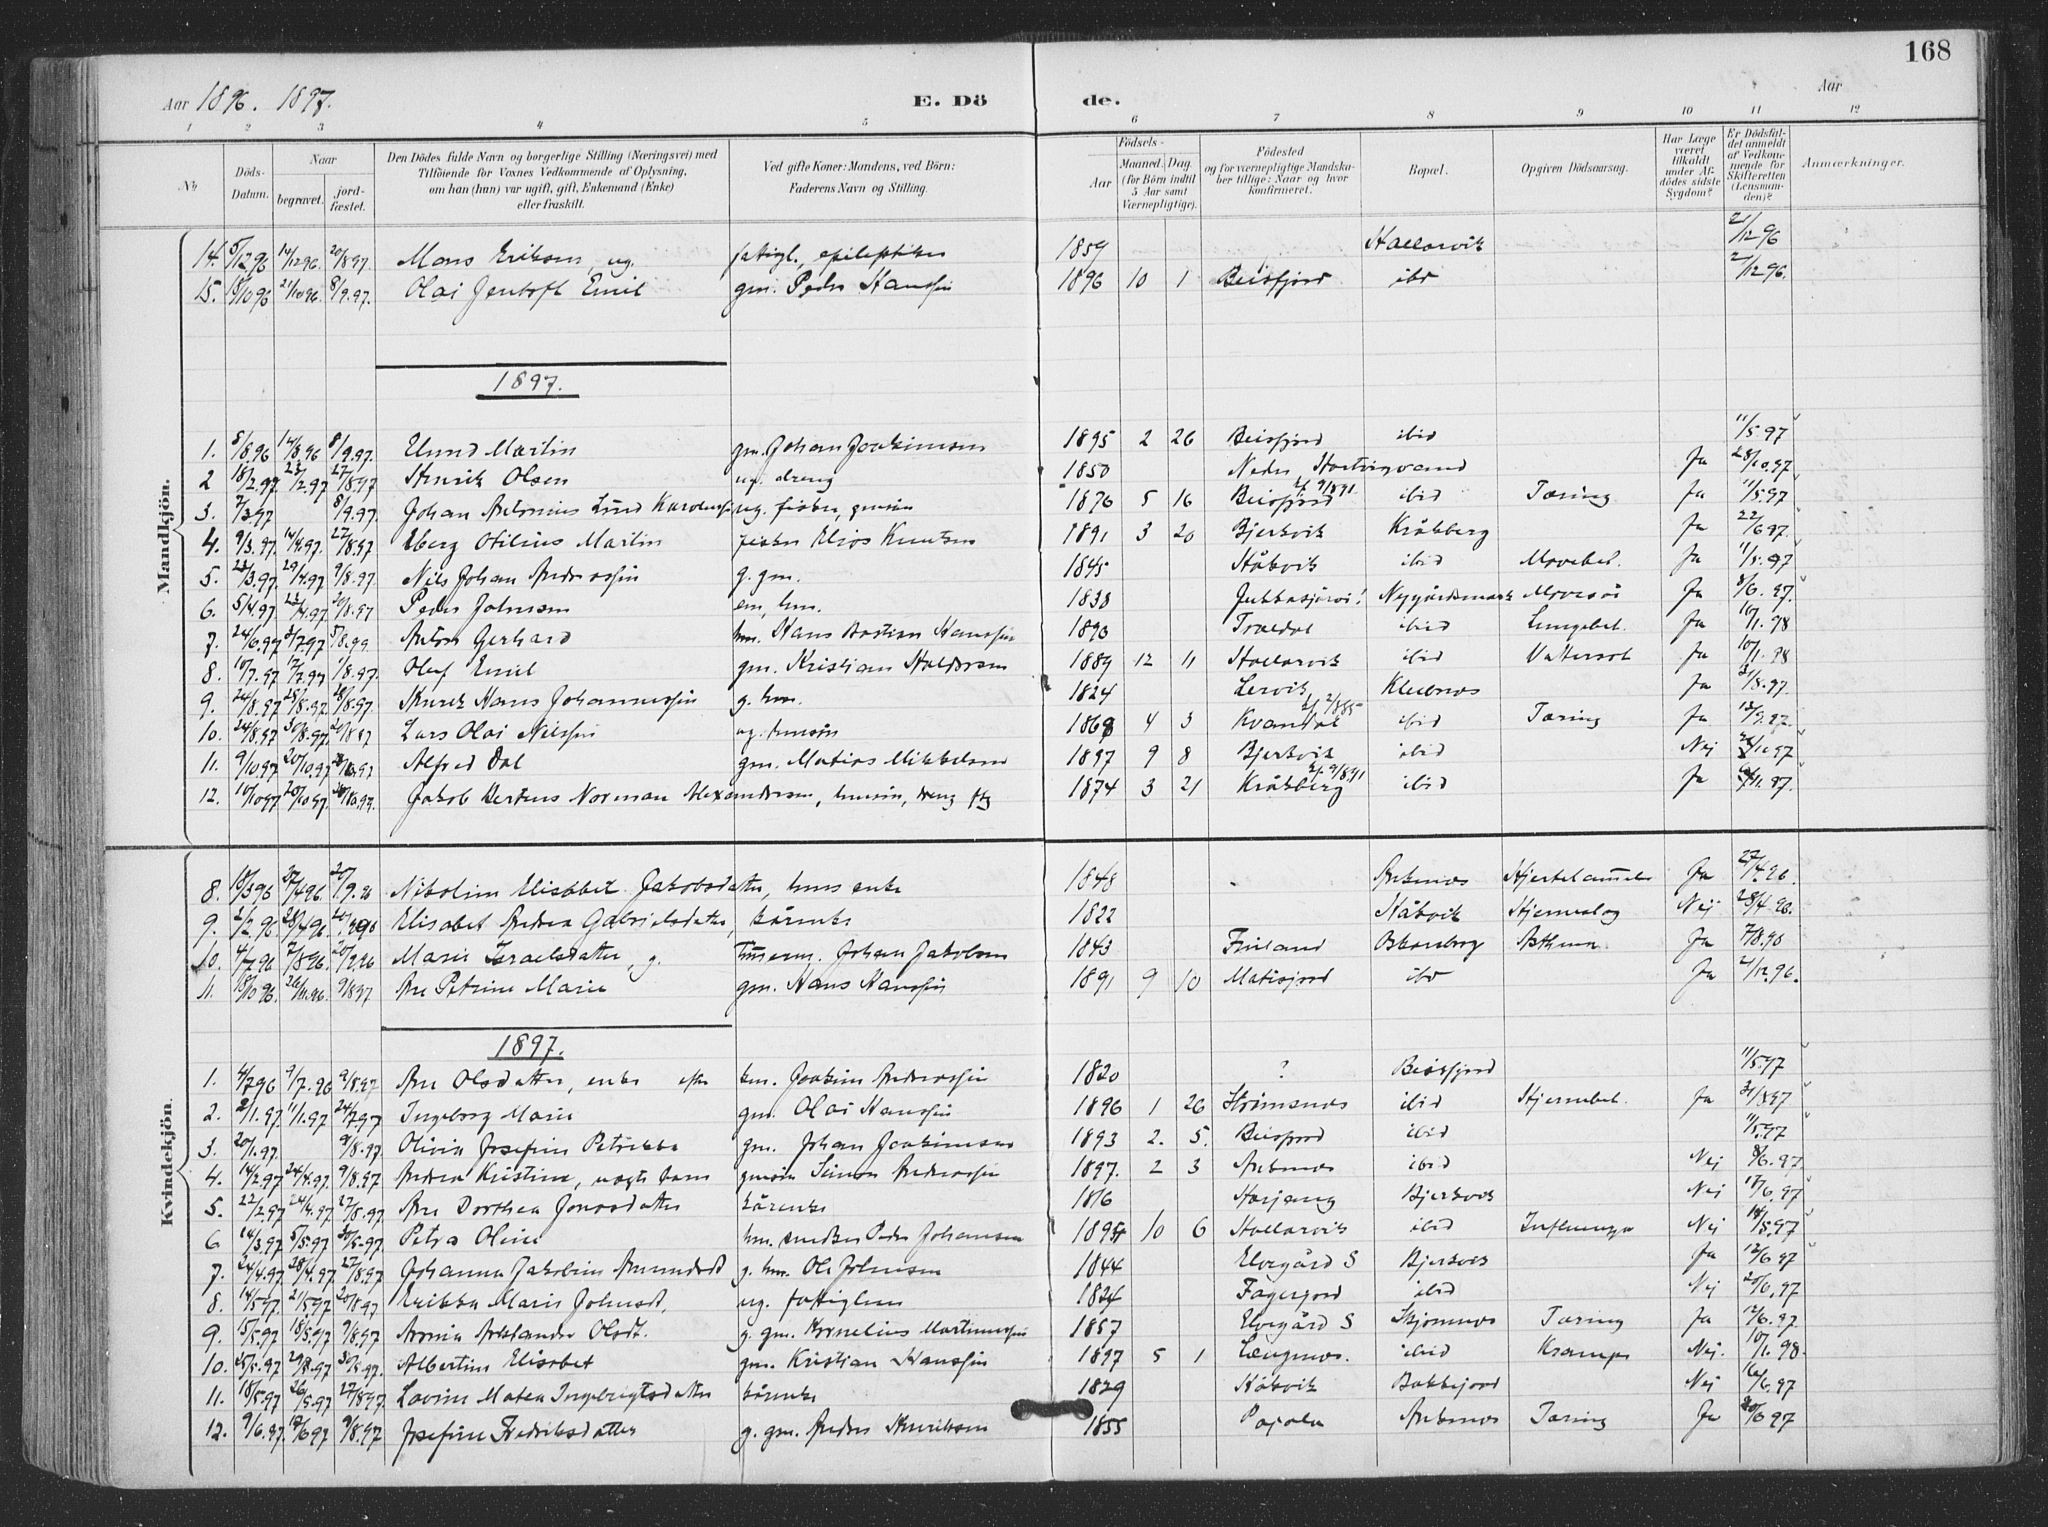 168
Aar 1896. 1897. E. Dö de. Aar
1 2 3 4 5 6 7 8 9 10 11 12
No
Döds-Datum.
Naar
begravet.
jord-fæstet.
Den Dödes fulde Navn og borgerlige Stilling (Næringsvei) med
Tilföiende for Voxnes Vedkommende af Oplysning,
om han (hun) var ugift, gift, Enkemand (Enke)
eller fraskilt.
Ved gifte Koner: Mandens, ved Börn:
Faderens Navn og Stilling.
Födsels-
Aar
Maaned. Dag.
(for Börn indtil
5 Aar samt
Værnepligtige).
Födested
og for værnepligtige Mandska-
ber tillige: Naar og hvor
konfirmeret.
Bopæl.
Opgiven Dödsaarsag.
Har Læge
været
tilkaldt
under Af-
dödes sidste
Sygdom?
Er Dödsfal-
det anmeldt
af Vedkom-
mende for
Skifteretten
(Lensman-
den)?
Anmærkninger.
Mandkjön.
14. 5/12 96 14/12 96. 20/8 97. Mons Erikson, ug. epileptiker 1859 Hallarvik 2/12 96
15. 21/10 96. 8/9. 97. Olai Jentoft Emil gm. Peder Hanssen 1896 10 1 Beisfjord ibd 2/12 96.
1897.
1. 5/8 96 14/8 96 8/9. 97. Martin gm. Johan Joakimsen 1895 2 26 Beisfjord ibid 11/5. 97
2 18/2. 97. 23/2. 97 27/8 97 Henrik Olsen ug. dreng 1850 Nedre Hartvigvand Ja 28/10. 97
3. 7/3 97 8/9. 97. Johan Antonius Lund ug. fisker, gmsøn 1876 5 16 Beisfjord 9/8 91 ibid Tæring Ja 11/5. 97
4. 9/3. 97. 14/4. 97. 27/8. 97 Eberg Otilius Martin fisker Elias Knutsen 1891 3 20 Bjerkvik Kråkberg Ja 22/6 97.
5. 23/3. 97. 29/4. 97 9/8. 97. Nils Johan Anderssen g. gm. 1845 Håkvik ibid Mavebet. Ja 11/5. 97
6. 5/4. 97 23/4. 97 20/8. 97 Peder Johnsen em, hm. 1838 Jukkasjärvi! Nygårdsmark Mavesår Ja 8/6. 97.
7. 24/6. 97 3/7. 97 5/8. 99 Anton Gerhard hm. Hans Bastian Hanssen 1890 Traldal ibid Lungebet. Ja 10/1. 98
8. 10/7. 97 17/7. 97 1/8. 97. Oluf Emil gm. Kristian Haldorsen 1889 12 11 Hallarvik ibid Vattersot Ja 10/1. 98
9. 24/8. 97 28/8. 97 28/8. 97 Henrik Hans Johannessen g. hm. 1824 Lervik Kleibnes Ja 31/8. 97.
10. 24/8. 97 30/8. 97 Lars Olai Nilssen ug. hmsøn 1869 4 3 Kvandal 2/8 85 ibid Tæring Ja 12/9. 97.
11. 9/10 97 20/10. 97 Alfred Dal gm. Matias Mikkelsen 1897 9 8 Bjerkvik ibid Nej 3/11. 97
12. 10/10 97 20/10 97 Jakob Bertens Norman Alexandersen, hmsøn, dreng 1874 3 21 Kråkberg 9/8 91 ibid Ja
Kvindekjön.
8. 10/3 96 Nikolina Elisabet Jakobsdatter, hms enke 1848 Ankenes Hjertelammelse Ja 27/4. 96.
9. 2/2. 96 28/4 96. Elisabet Andrea Gabrielsdatter, kårenke 1822 Håkvik Hjerneslag Nej 28/4. 96.
10. 4/7 96 7/8 96. Marie Israelsdatter, g. Johan Jakobsen 1843 Finland Oskarsborg Asthma Ja 7/8. 96
11. 18/10 96. 26/11. 96. 9/8 97 Ane Petrine Marie gm. Hans Hanssen 1891 9 10 Matisjord ibd Ja 2/12. 96.
1897.
1. 4/7 96 9/7. 96 9/8 97 Ane Olsdatter, enke efter hm. Joakim Anderssen 1820 ? Beisfjord 11/5. 97
2. 2/1. 97. 11/1. 97 24/7 97 Ingeborg Marie gm. Olai Hanssen 1896 1 26 Strømsnes ibid Hjernebet. Ja
3. 20/1. 97. 9/8. 97. Olivia Josefine Petrikka gm. Johan Joakimsen 1893 2. 5. Beisfjord ibid 11/5. 97
4. 14/2. 97 24/4. 97. 9/8. 97 Andrea Kristine, uægte barn gmsøn Simon Anderssen 1897. 2 3 Ankenes ibid Nej 8/6. 97
5. 22/2. 97 24/4. 97 27/8. 97. Ane Dorthea Jonasdatter kårenke 1816 Herjang Bjerkvik Nej 17/6. 97
6 14/3. 97 5/5. 97 20/5. 97. Petra Oline hm. smeden Peder Johansen 1894 10 6 Hallarvik ibid Influenza Nej 18/5. 97
7. 24/4. 97 28/4. 97 27/8. 97 Johanna Jakobine Amundsd g. hm. Ole Johnsen 1844 Elvegård S Bjerkvik Ja 12/6. 97
8. 14/5 97. 21/5 97 20/8 97 Erikka Marie Johnsd. ug. fattiglem 1824 Fagerjord ibid Nej 20/6. 97
9. 15/5. 97 18/5 97 9/8. 97 Aronia Aleksandra Olsdt. g. gm. Kornelius Martinussen 1857 Elvegård S Skjomnes Tæring Ja 12/6. 97
10. 15/5. 97 29/5. 97 30/5. 97. Albertine Elisabet gm. Kristian Hanssen 1897 5 1 Lengenes. ibid Krampe Nej. 10/1. 98.
11. 18/5. 97 26/5. 97 27/8 97 Lovise Matea Ingebrigtsdatter kårenke 1829 Håkvik Bakkejord Nej 16/6. 97
12. 9/6. 97. 18/6 97 9/8. 97 Josefine Fredriksdatter g. gm. Anders Henriksen 1855 Pajala Ankenes Tæring Ja 20/6 97